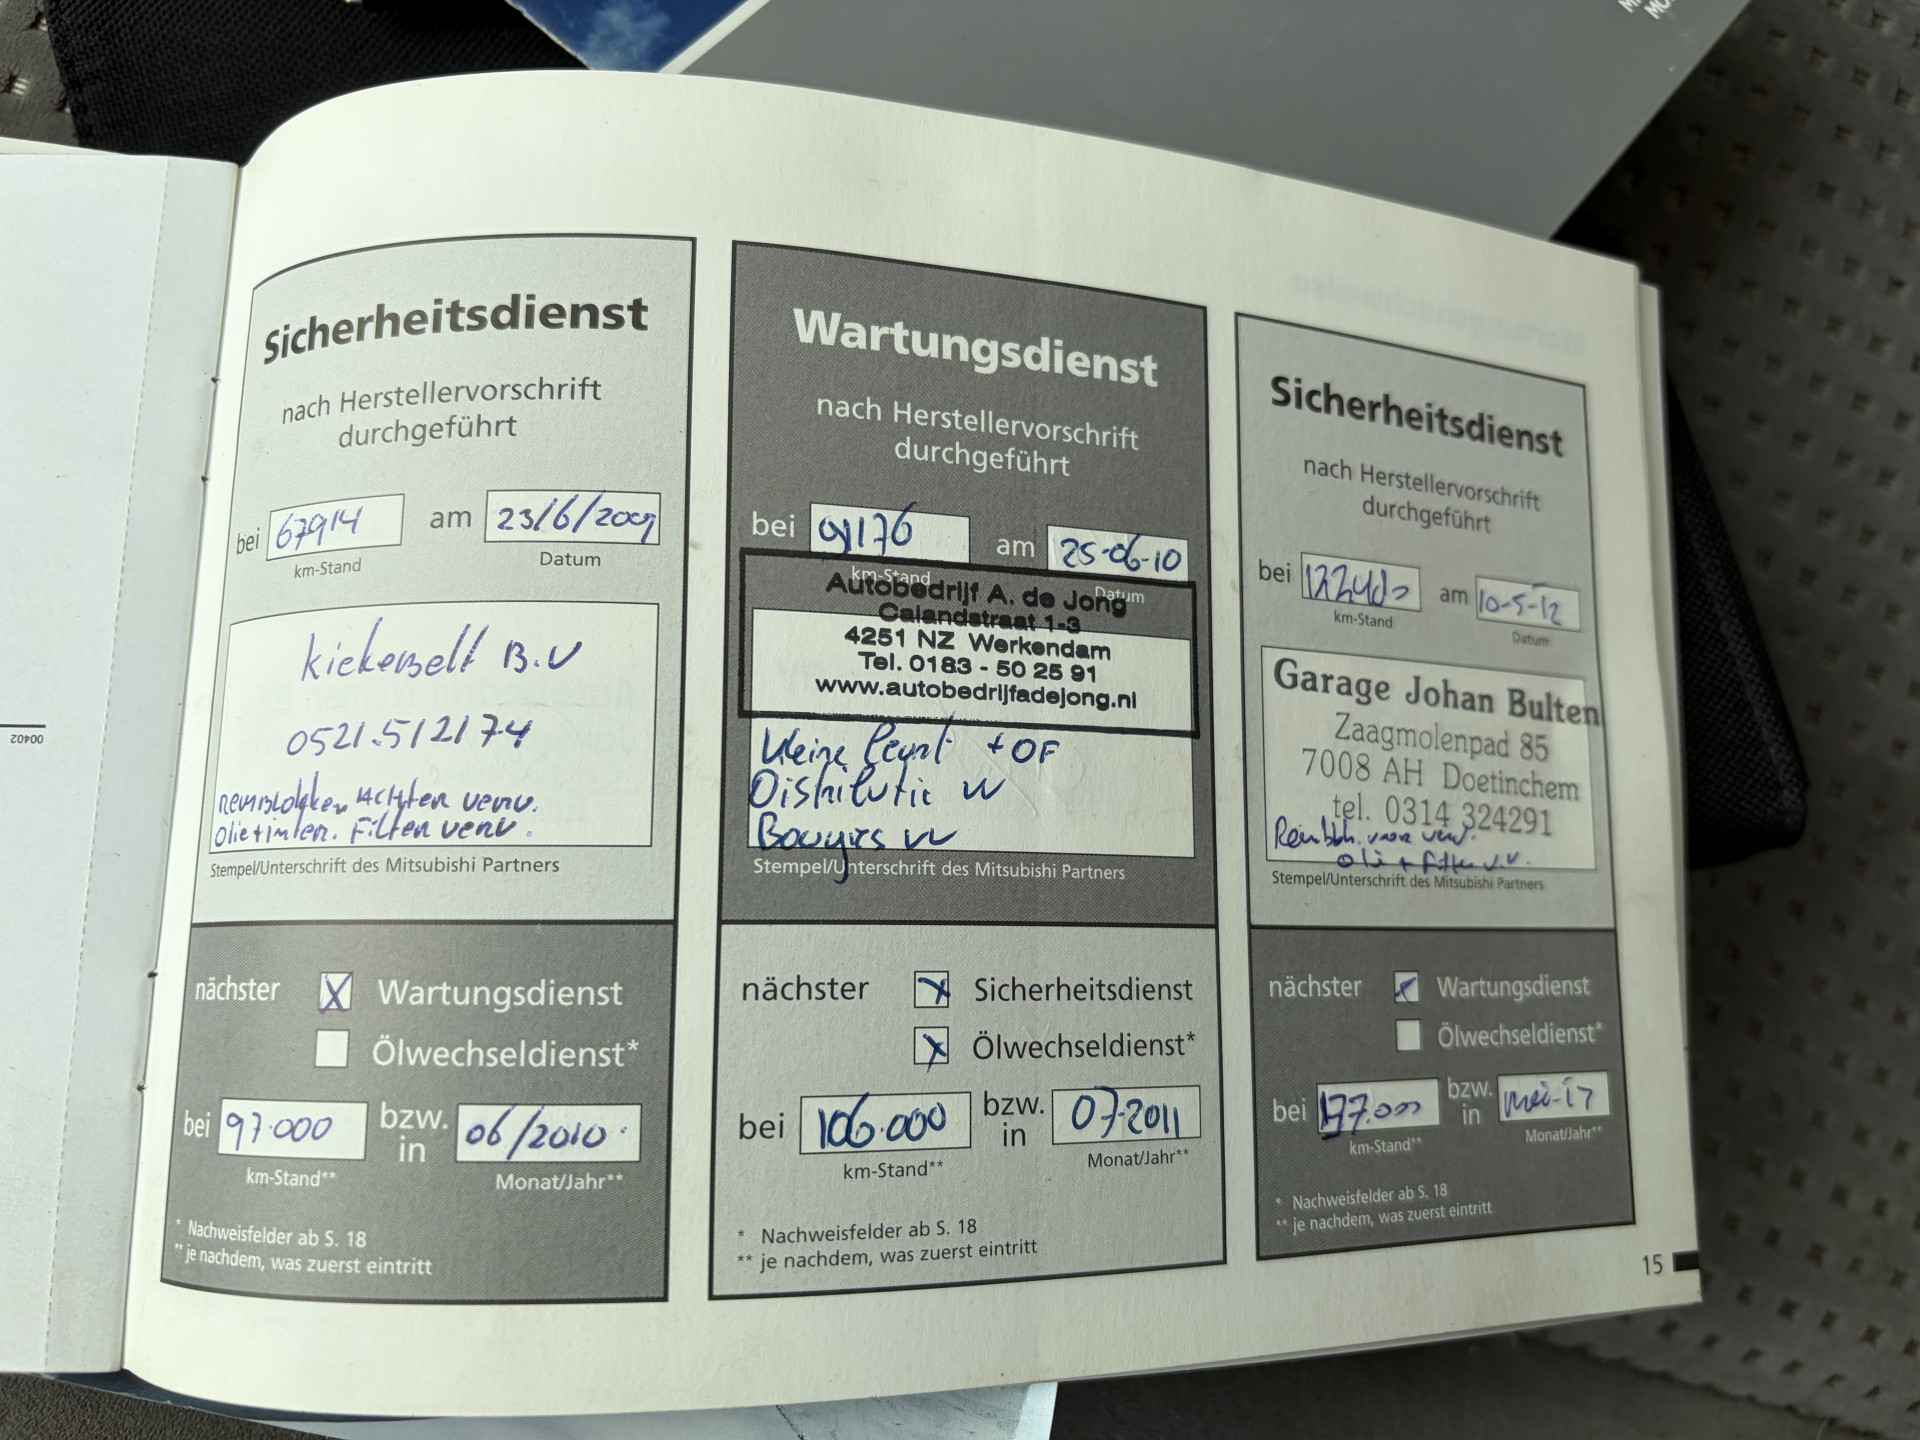 Sicherheitsdienst
nach Herstellervorschrift
durchgeführt
bei 67914 am 23/6/2009
km-Stand Datum
B.V
0521.512174
remblokken achter verv.
Filter verv.
Stempel/Unterschrift des Mitsubishi Partners
nächster X Wartungsdienst
Ölwechseldienst*
bei 97.000 bzw. in 06/2010
km-Stand** Monat/Jahr**
* Nachweisfelder ab S. 18
** je nachdem, was zuerst eintritt
Wartungsdienst
nach Herstellervorschrift
durchgeführt
bei 91176 am 25-06-10
km-Stand Datum
Autobedrijf A. de Jong
Calandstraat 1-3
4251 NZ Werkendam
Tel. 0183 - 50 25 91
www.autobedrijfadejong.nl
Kleine beurt + OF
Distributie VV
Bougies VV
Stempel/Unterschrift des Mitsubishi Partners
nächster X Sicherheitsdienst
X Ölwechseldienst*
bei 106.000 bzw. in 07-2011
km-Stand** Monat/Jahr**
* Nachweisfelder ab S. 18
** je nachdem, was zuerst eintritt
Sicherheitsdienst
nach Herstellervorschrift
durchgeführt
bei am 10-5-12
km-Stand Datum
Garage Johan Bulten
Zaagmolenpad 85
7008 AH Doetinchem
tel. 0314 324291
voor verv.
olie + filter v.v.
Stempel/Unterschrift des Mitsubishi Partners
nächster Wartungsdienst
Ölwechseldienst*
bei bzw. in
km-Stand** Monat/Jahr**
* Nachweisfelder ab S. 18
** je nachdem, was zuerst eintritt
15
00402